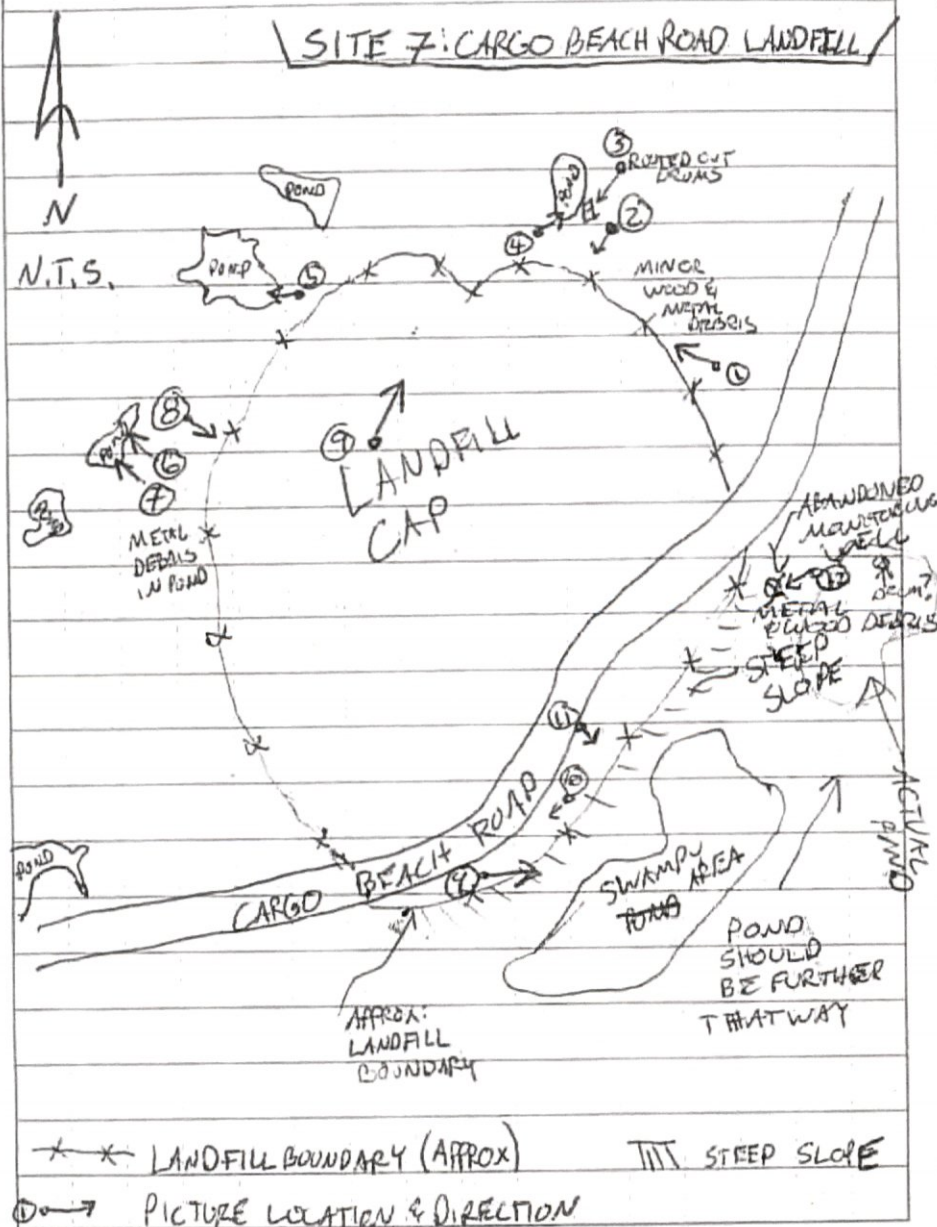 SITE 7: CARGO BEACH ROAD LANDFILL
N
N.T.S.
POND
POND
POND
③
ROUTED OUT
DRUMS
②
④
⑤
MINOR
WOOD &
METAL
DEBRIS
①
⑧
⑥
⑦
POND
METAL
DEBRIS
IN POND
⑨
LANDFILL
CAP
ABANDONED
MONITORING
WELL
⑫
DRUM?
METAL
& WOOD DEBRIS
STEEP
SLOPE
⑪
⑩
ACTUAL
POND
POND
CARGO BEACH ROAD
⑨
SWAMPY AREA
POND
POND
SHOULD
BE FURTHER
THAT WAY
APPROX:
LANDFILL
BOUNDARY
LANDFILL BOUNDARY (APPROX)
STEEP SLOPE
① PICTURE LOCATION & DIRECTION